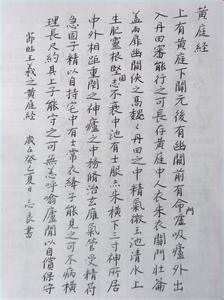 黄庭經
上有黄庭下關元後有幽闕前有命門虛吸廬外出
入丹田審能行之可長存黄庭中人衣朱衣關門壯籥
盖兩扉幽闕俠之高巍巍丹田之中精氣微玉池清水上
生肥靈根堅志不衰中池有士服赤朱横下三寸神所居
中外相距重閇之神廬之中務脩治玄廱氣管受精符
急固子精以自持宅中有士常衣絳子能見之可不病横
理長尺約其上子能守之可無恙呼噏廬間以自償保守
節臨王羲之黄庭經 歲在癸巳夏日志良書